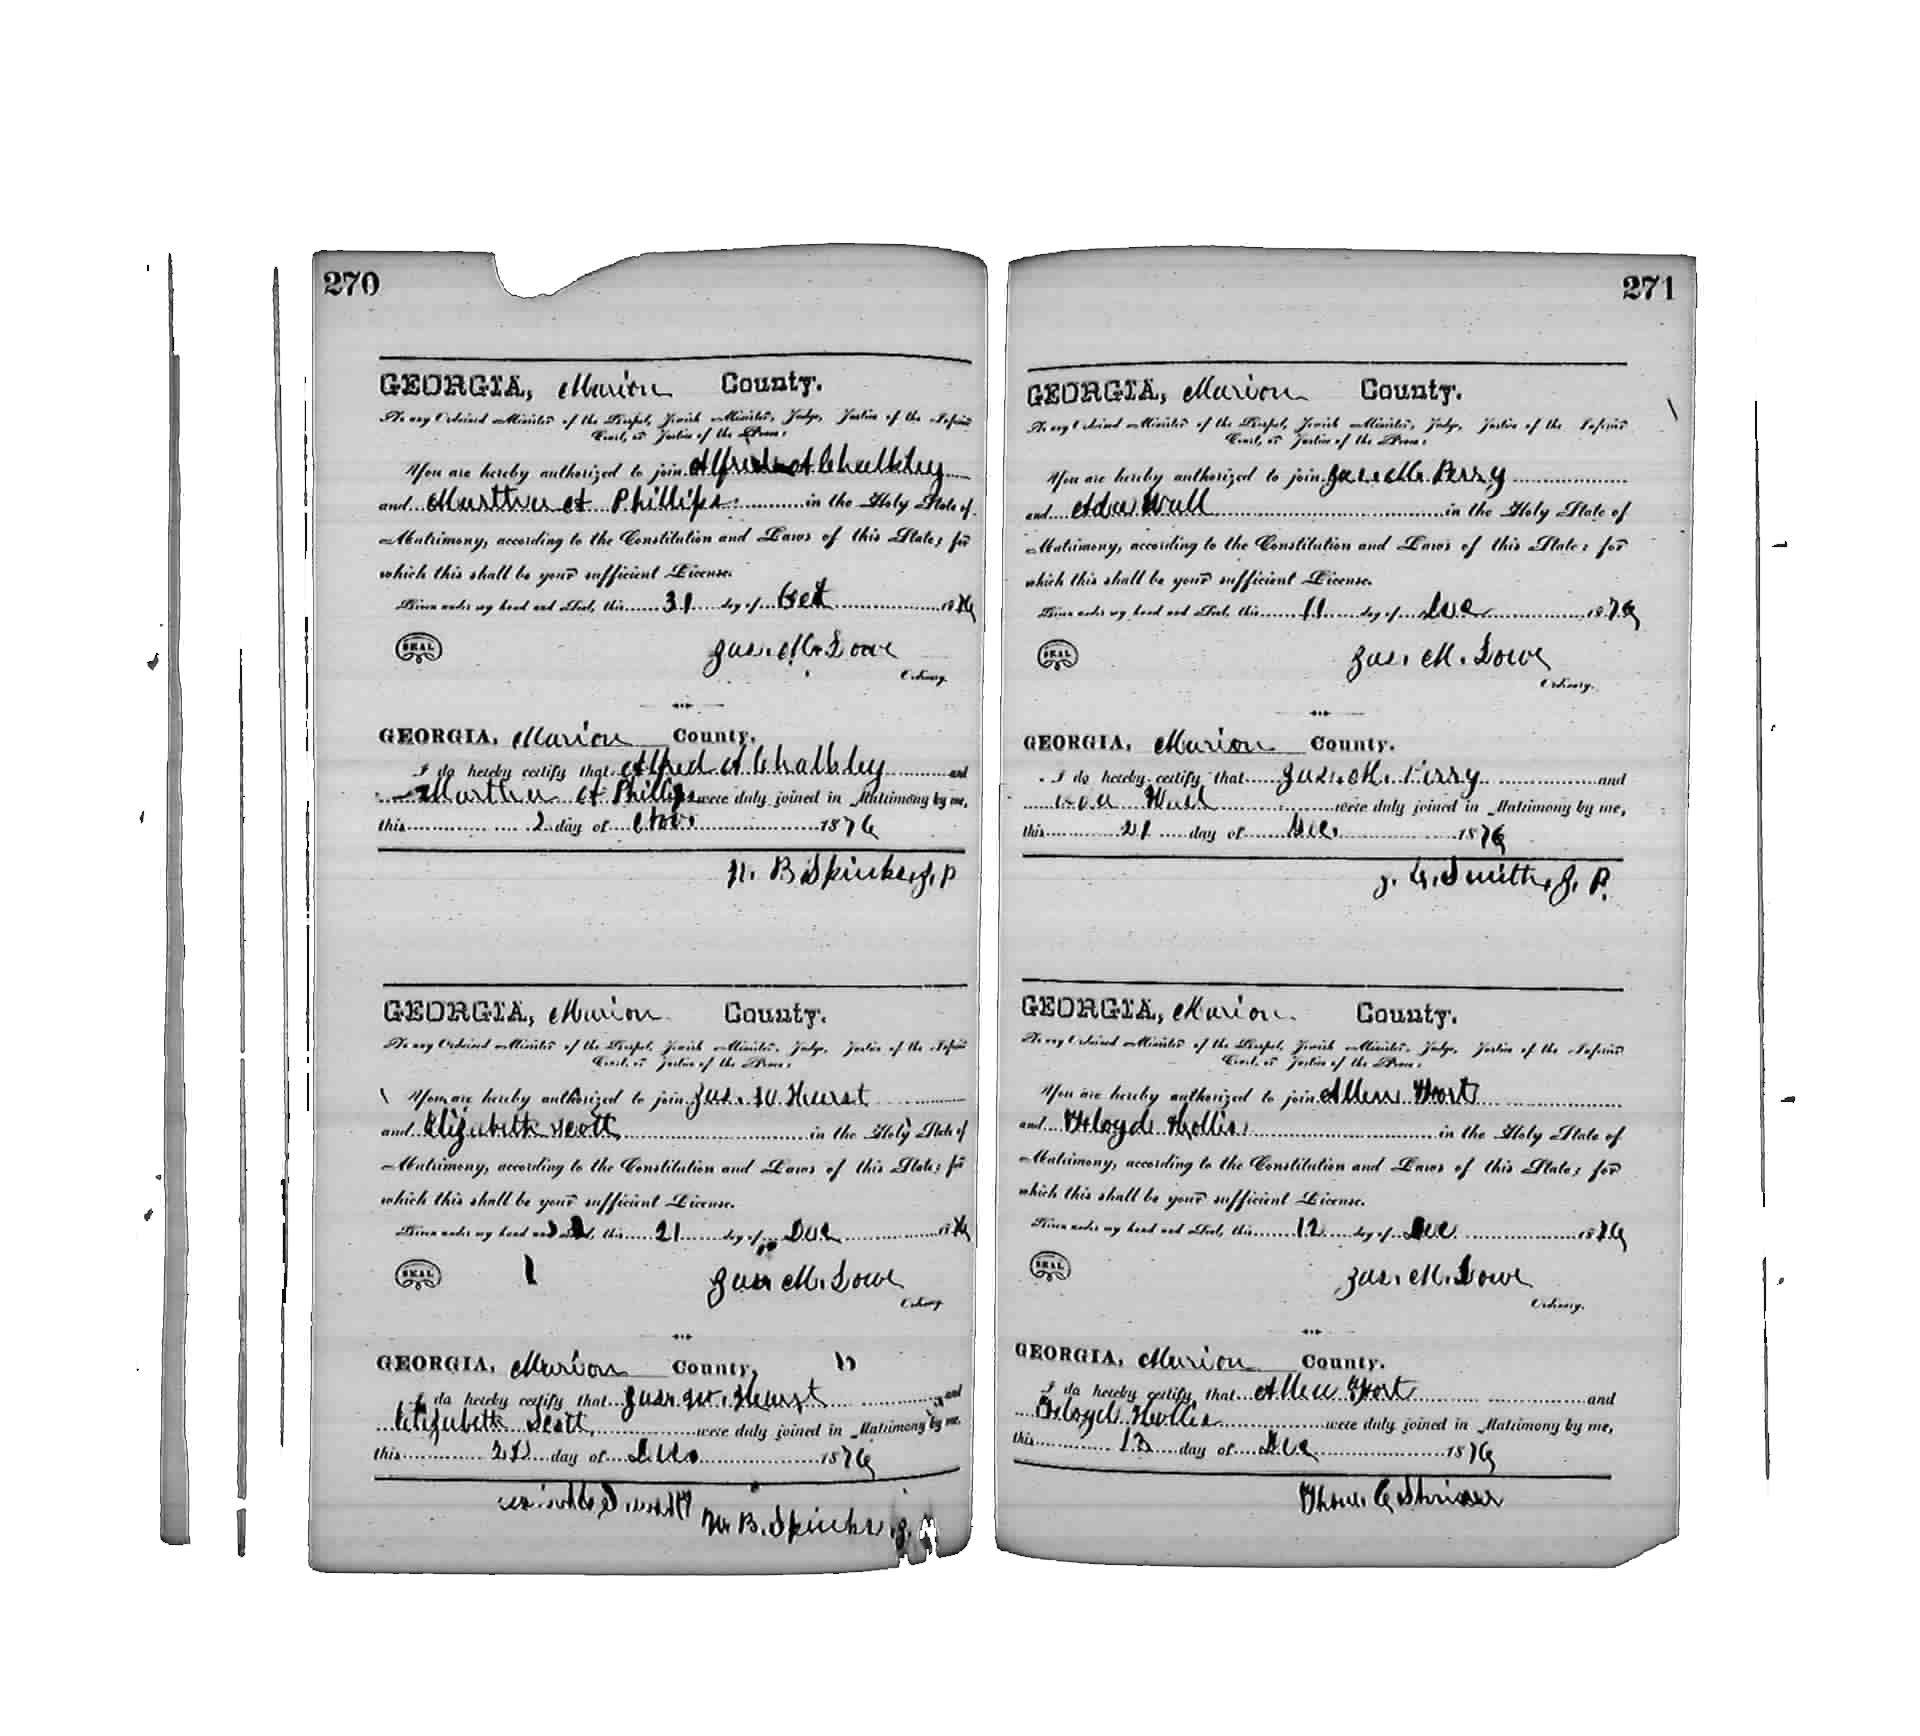 270
GEORGIA, Marion County.
To any Ordained Minister of the Gospel, Jewish Minister, Judge, Justice of the Inferior
Court, or Justice of the Peace:
You are hereby authorized to join Alfred A Chalkley
and Martha A Phillips in the Holy State of
Matrimony, according to the Constitution and Laws of this State; for
which this shall be your sufficient License.
Given under my hand and Seal, this 31 day of Oct 1876
SEAL
Jas. M. Lowe
Ordinary.
GEORGIA, Marion County.
I do hereby certify that Alfred A Chalkley and
Martha A Phillips were duly joined in Matrimony by me,
this 2 day of Nov. 1876
B Spinks, J. P
GEORGIA, Marion County.
To any Ordained Minister of the Gospel, Jewish Minister, Judge, Justice of the Inferior
Court, or Justice of the Peace:
You are hereby authorized to join Jas. W Hearst
and Elizabeth Scott in the Holy State of
Matrimony, according to the Constitution and Laws of this State; for
which this shall be your sufficient License.
Given under my hand and Seal, this 21 day of Dec 1876
SEAL
Jas. M. Lowe
Ordinary.
GEORGIA, Marion County.
I do hereby certify that Jas. W. Hearst and
Elizabeth Scott were duly joined in Matrimony by me.
this day of Dec 1876
B. Spinks J.
271
GEORGIA, Marion County.
To any Ordained Minister of the Gospel, Jewish Minister, Judge, Justice of the Inferior
Court, or Justice of the Peace:
You are hereby authorized to join Jas. M. Perry
and Ada Wall in the Holy State of
Matrimony, according to the Constitution and Laws of this State; for
which this shall be your sufficient License.
Given under my hand and Seal, this 11 day of Dec 1876
SEAL
Jas. M. Lowe
Ordinary.
GEORGIA, Marion County.
I do hereby certify that Jas. M. Perry and
Ada Wall were duly joined in Matrimony by me,
this 21 day of Dec. 1876
J. G. Smith, J. P.
GEORGIA, Marion County.
To any Ordained Minister of the Gospel, Jewish Minister, Judge, Justice of the Inferior
Court, or Justice of the Peace:
You are hereby authorized to join Allen Hort
and Floyd Hollis in the Holy State of
Matrimony, according to the Constitution and Laws of this State; for
which this shall be your sufficient License.
Given under my hand and Seal, this 12 day of Dec 1876
SEAL
Jas. M. Lowe
Ordinary.
GEORGIA, Marion County.
I do hereby certify that Allen Hort and
Floyd Hollis were duly joined in Matrimony by me,
this 13 day of Dec 1876
Thos. C